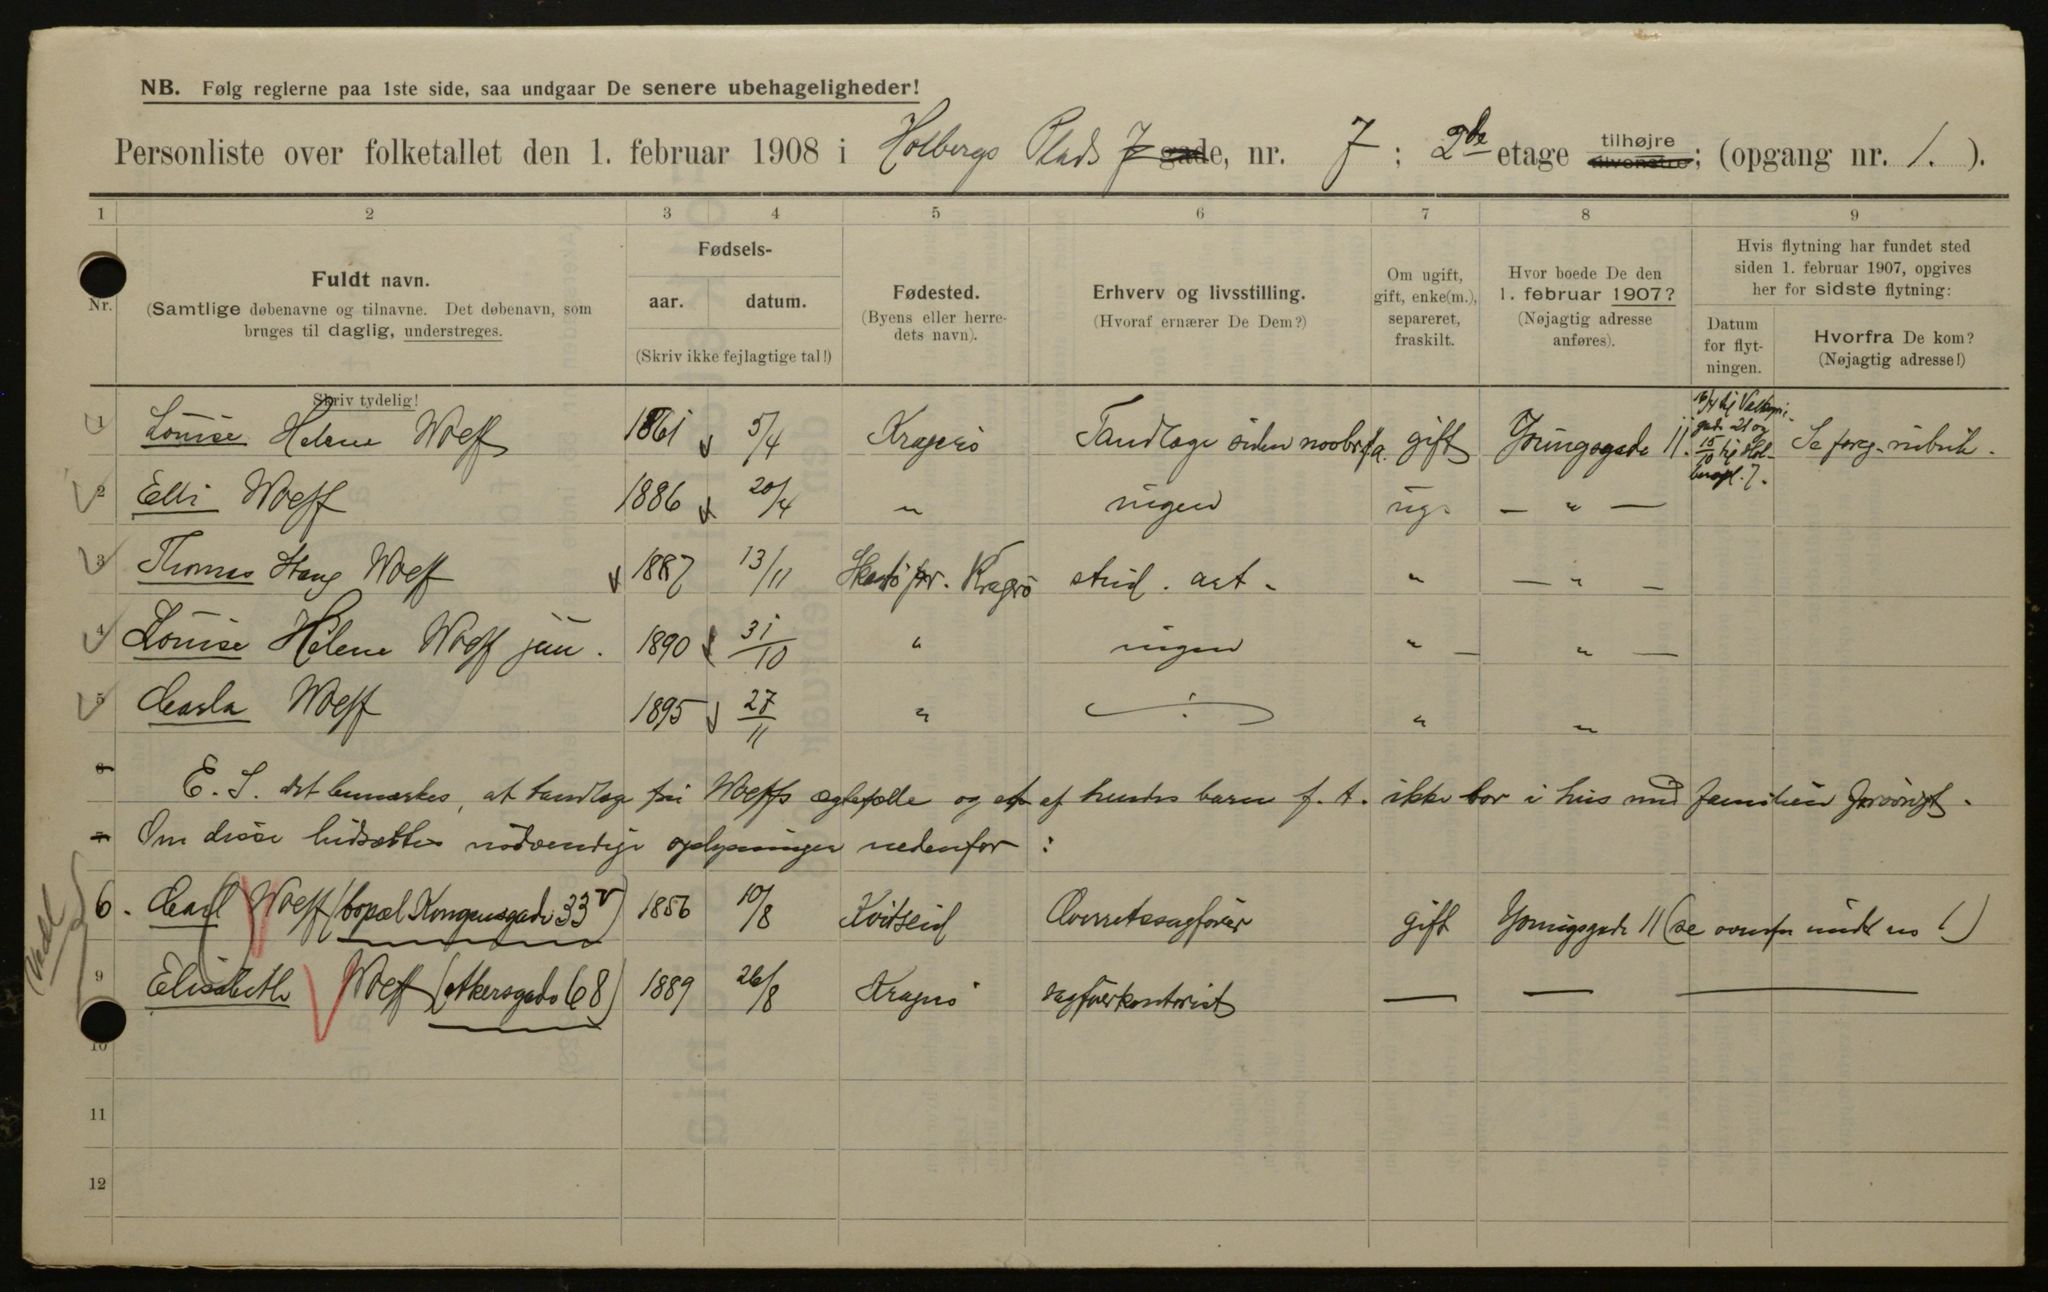 NB. Følg reglerne paa 1ste side, saa undgaar De senere ubehageligheder!
Personliste over folketallet den 1. februar 1908 i Holbergs Plads 7 gade, nr. 7; 2de etage tilhøjre tilvenstre; (opgang nr. 1.).
1 2 3 4 5 6 7 8 9
Nr.
Fuldt navn.
(Samtlige døbenavne og tilnavne. Det døbenavn, som
bruges til daglig, understreges.
Skriv tydelig!
Fødsels-
aar. datum.
(Skriv ikke fejlagtige tal!)
Fødested.
(Byens eller herre-
dets navn).
Erhverv og livsstilling.
(Hvoraf ernærer De Dem?)
Om ugift,
gift, enke(m.),
separeret,
fraskilt.
Hvor boede De den
1. februar 1907?
(Nøjagtig adresse
anføres).
Hvis flytning har fundet sted
siden 1. februar 1907, opgives
her for sidste flytning:
Datum
for flyt-
ningen.
Hvorfra De kom?
(Nøjagtig adresse!)
1 Louise Helene Woeff 1861 5/4 Kragerø Tandlæge siden gift Youngsgade 11. 15/10 til Hol- Se forg. rubrik.
2 Elli Woeff 1886 20/4 " ingen ug. — " —
3 Thomas Woeff 1887 13/11 Kragerø stud. art. " — " —
4 Louise Helene Woeff jun. 1890 31/10 " ingen " — " —
5 Carla Woeff 1895 27/11 " " "
6
E. S. det bemærkes, at tandlæge fru Woeffs ægtefælle og et af hendes barn f. t. ikke bor i hus med familien forøvrigt.
7
Om disse hidsættes nødvendige oplysninger nedenfor:
6. Carl Woeff (bopæl Kongensgade 33 v) 1856 10/8 Kvitseid Overretssagfører gift Youngsgade 11 (se ovenfor under no 1)
9 Elisabeth Woeff (Akersgade 68) 1889 26/8 Kragerø sagførerkontorist — — —
10
11
12